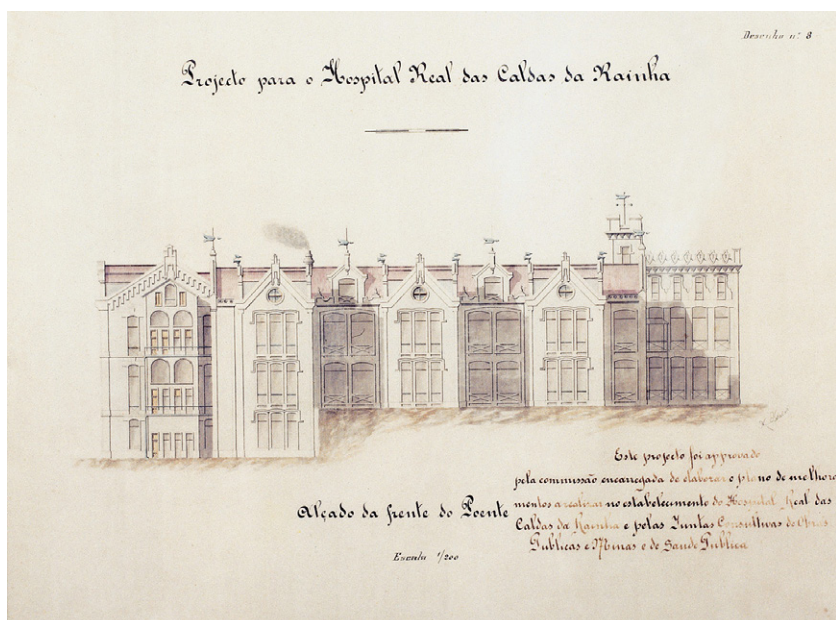 Desenho nº 8
Projecto para o Hospital Real das Caldas da Rainha
Alçado da frente do Poente
Escala 1/200
Este projecto foi approvado
pela commissão encarregada de elaborar o plano de melhora
mentos a realizar no estabelecimento do Hospital Real das
Caldas da Rainha e pelas Juntas Consultivas de Obras
Publicas e Minas e de Saude Publica